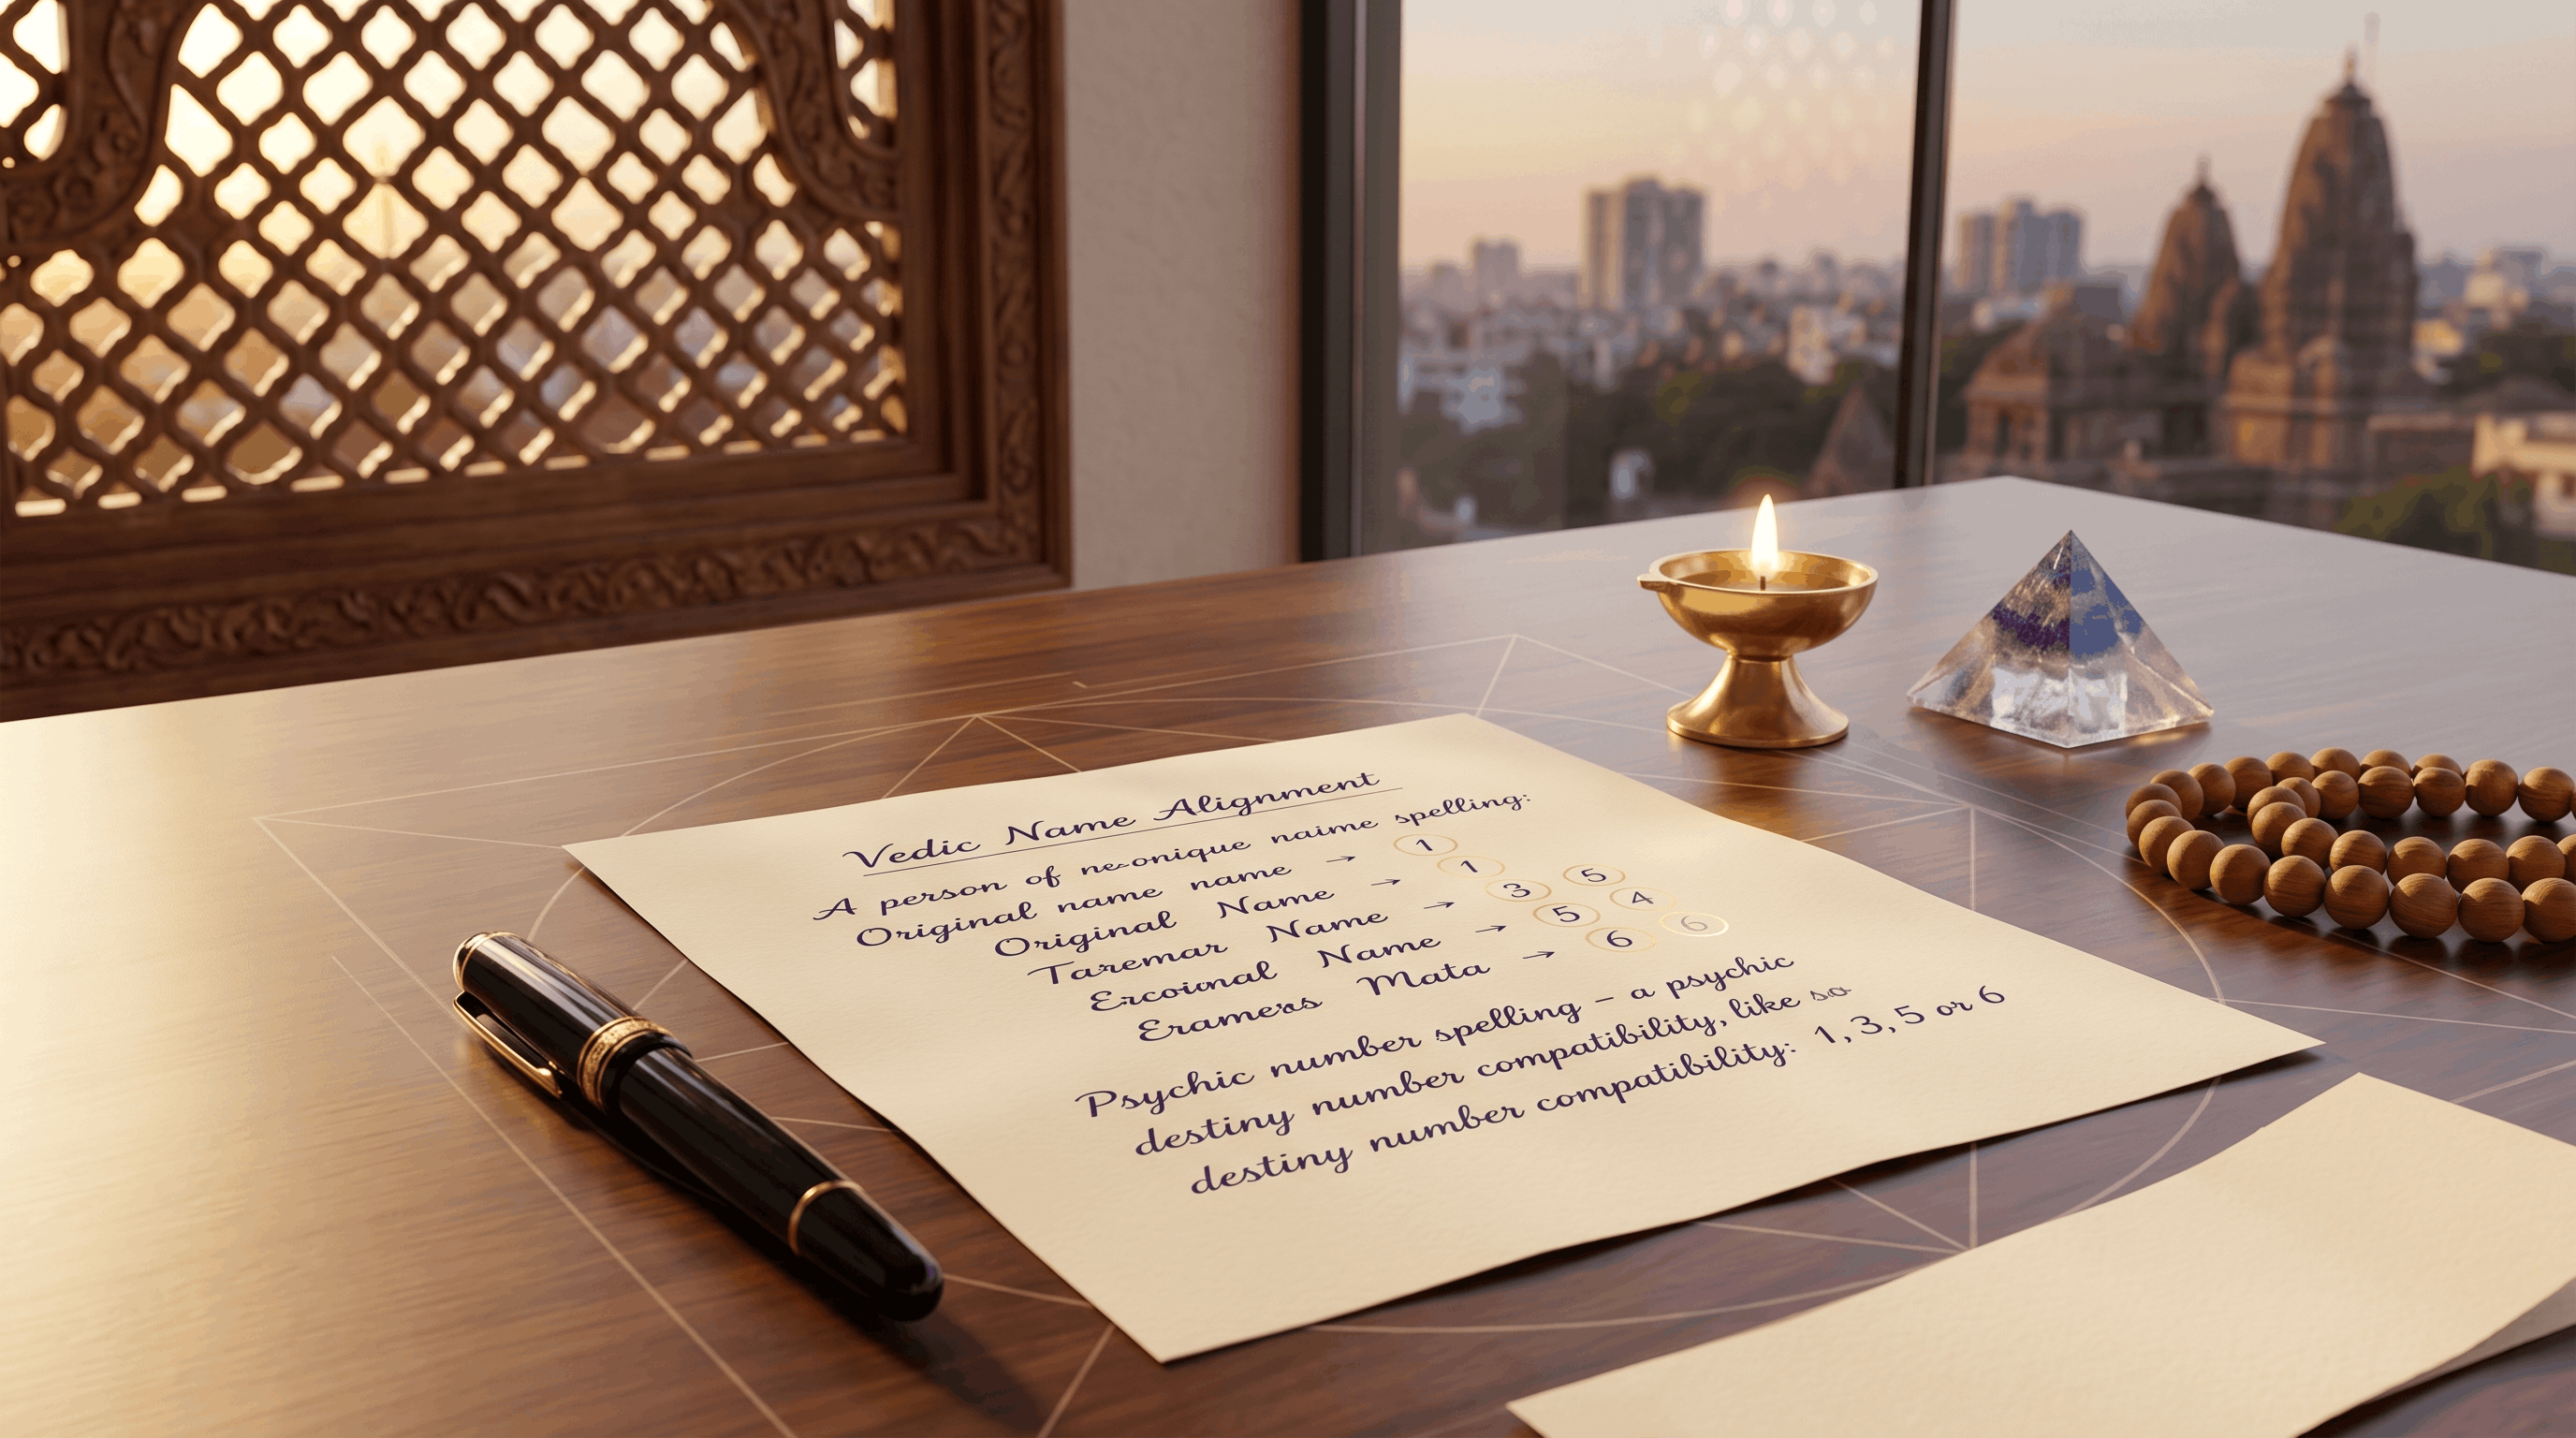 Vedic Name Alignment
A person of ne-onique naime spelling:
Original name name → 1
Original Name → 1
Taremar Name → 3 5
Ercoional Name → 5 4
Eramers Mata → 6 6
Psychic number spelling – a psychic
destiny number compatibility, like so
destiny number compatibility: 1, 3, 5 or 6